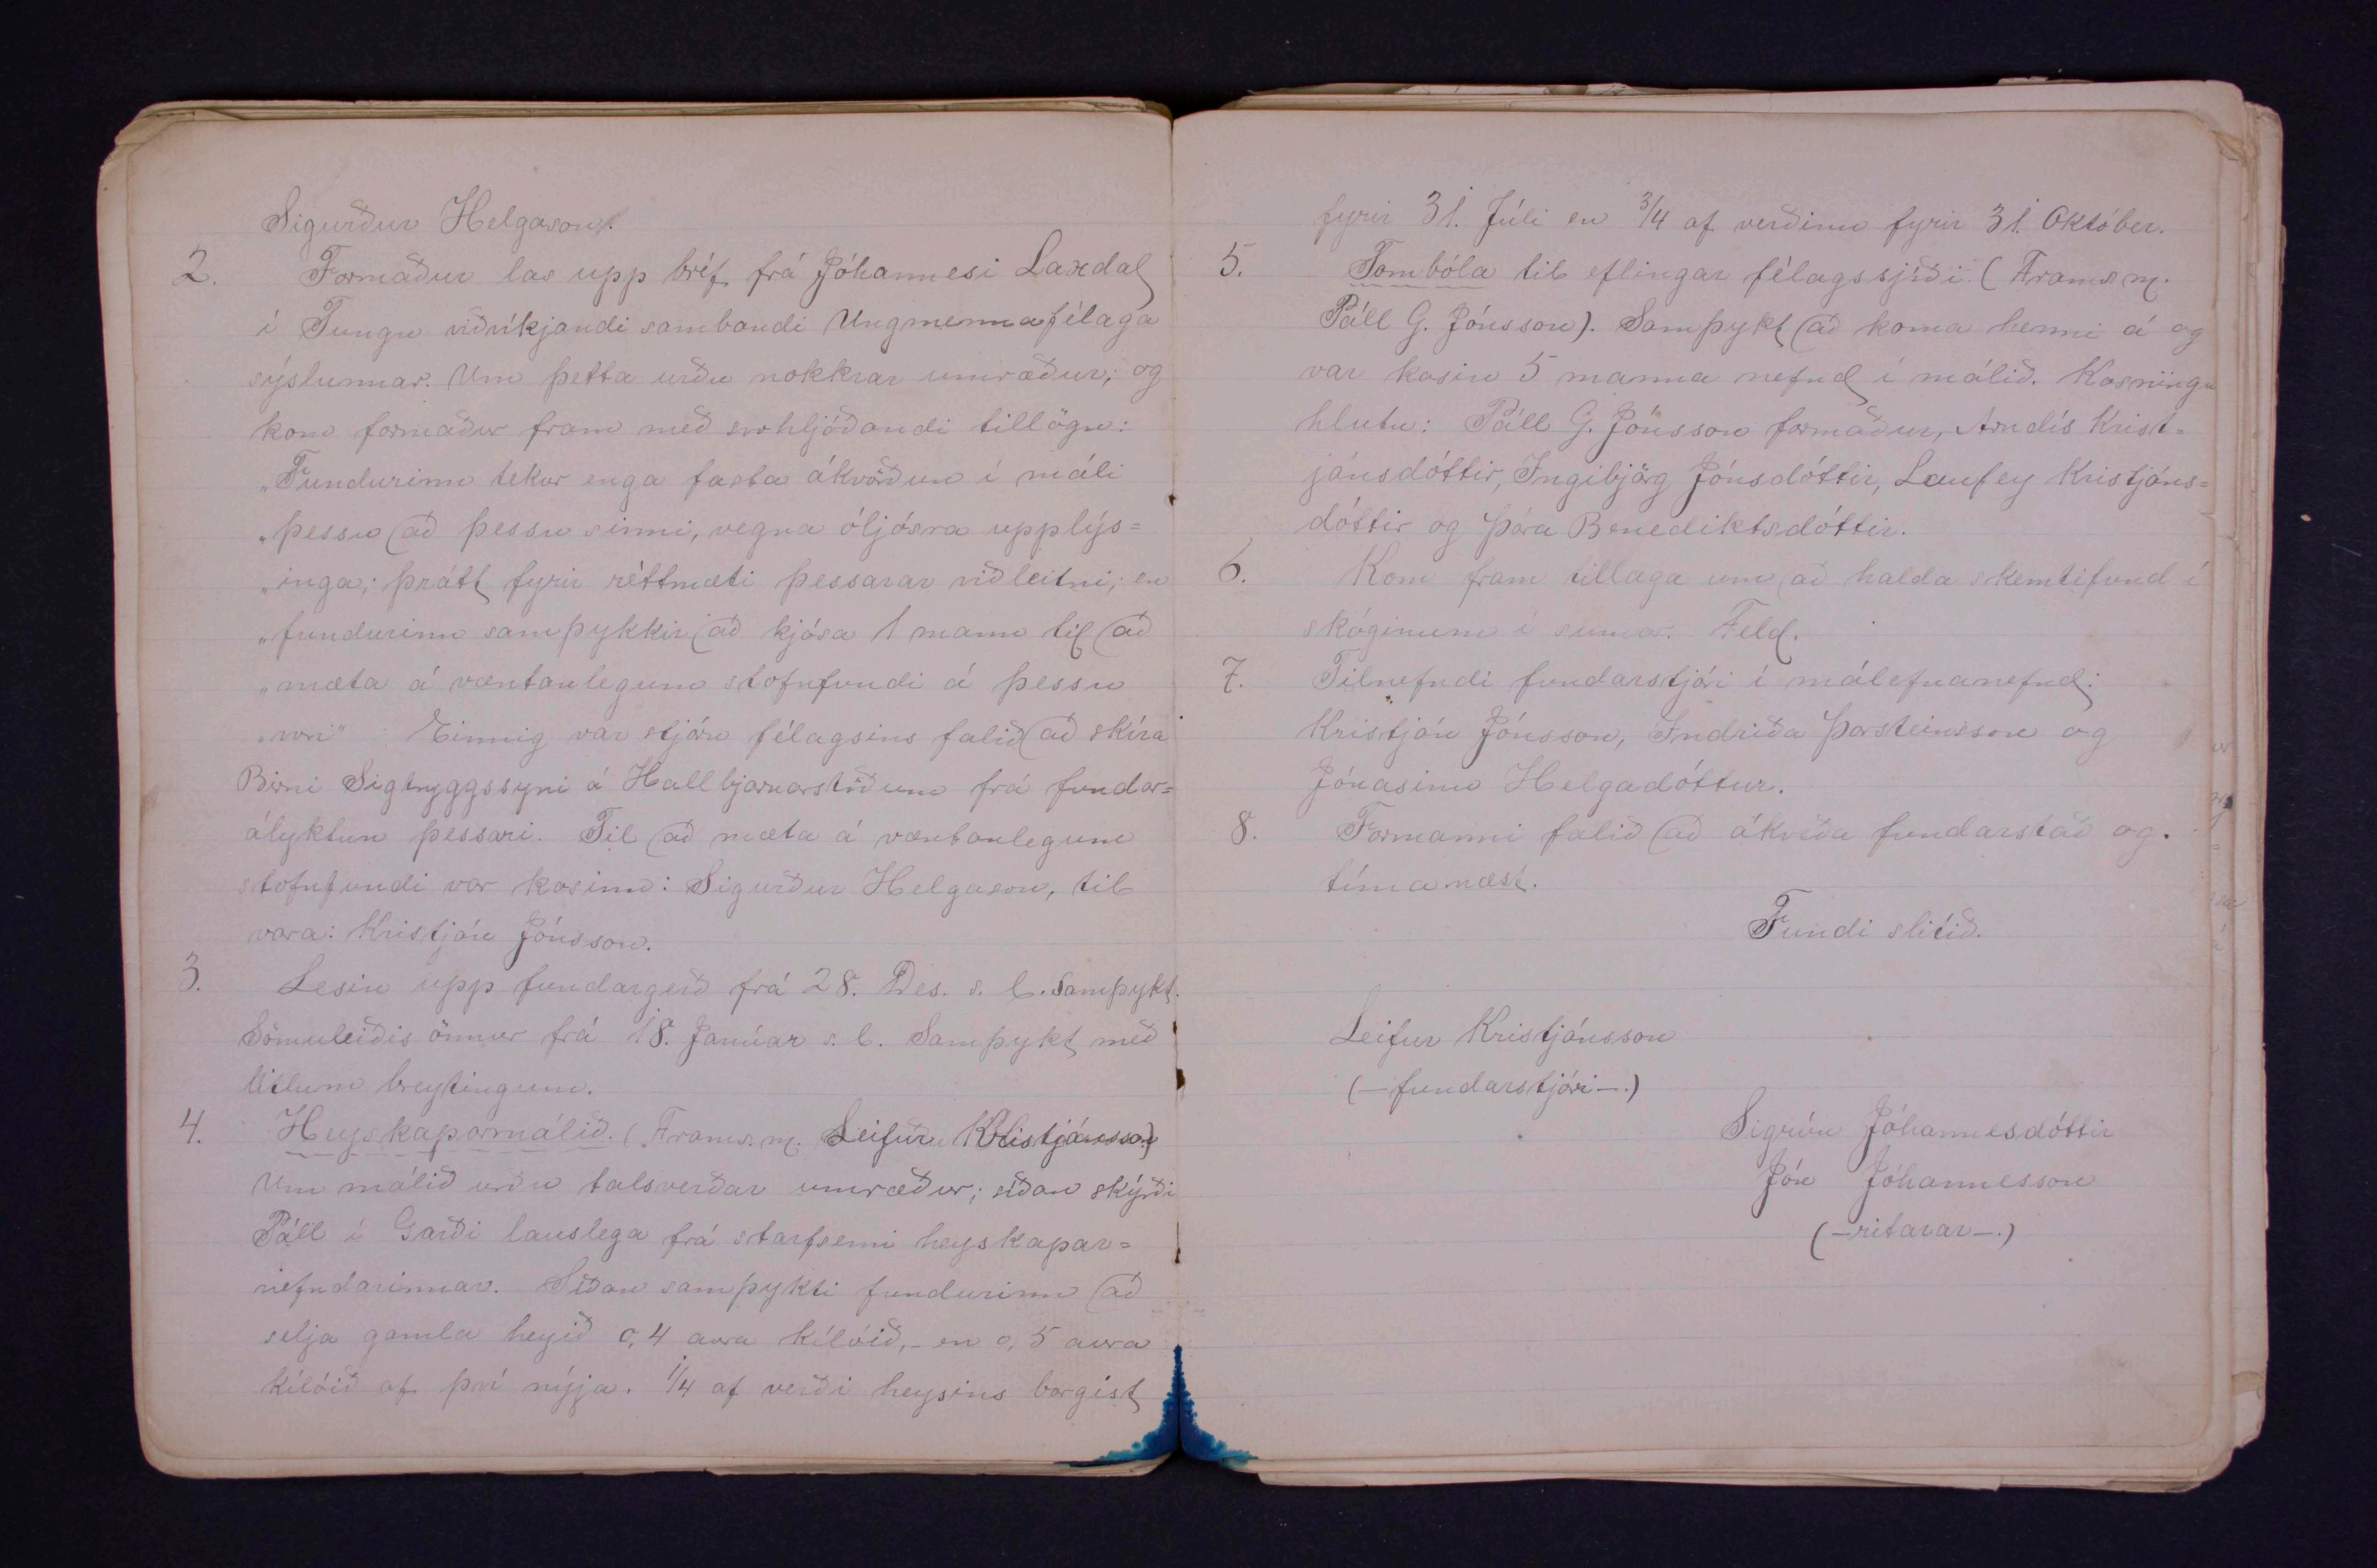 Sigurður Helgason.
2. Formaður las upp bréf frá Jóhannesi Laxdal
í Tungu viðvíkjandi sambandi Ungmennafélaga
sýslunnar. Um þetta urðu nokkrar umræður; og
kom formaður fram með svohljóðandi tillögu:
„Fundurinn tekur enga fasta ákvörðun í máli
„þessu að þessu sinni, vegna óljósra upplýs=
„inga; þrátt fyrir réttmæti þessarar viðleitni; en
„fundurinn samþykkir að kjósa 1 mann til að
„mæta á væntanlegum stofnfundi á þessu
„vori" Einnig var stjórn félagsins falið að skíra
Birni Sigtryggssyni á Hallbjarnarstöðum frá fundar=
ályktun þessari. Til að mæta á væntanlegum
stofnfundi var kosinn: Sigurður Helgason, til
vara: Kristján Jónsson.
3. Lesin upp fundargerð frá 28. Des. s. l. Samþykt.
Sömuleiðis önnur frá 18. Janúar s. l. Samþykt með
litlum breytingum.
4. Heyskaparmálið. (Frams.m. Leifur Kristjánsson)
Um málið urðu talsverðar umræður; síðan skýrði
Páll í Garði lauslega frá starfsemi heyskapar=
nefndarinnar. Síðan samþykti fundurinn að
selja gamla heyið 0,4 aura kílóið,- en 0,5 aura
kílóið af því nýja. 1/4 af verði heysins borgist
fyrir 31. Júli en 3/4 af verðinu fyrir 31. Október.
5. Tombóla til eflingar félagssjóði. (Frams.m.
Páll G. Jónsson). Samþykt að koma henni á og
var kosin 5 manna nefnd í málið. Kosningu
hlutu: Páll G. Jónsson formaður, Arndís Krist=
jánsdóttir, Ingibjörg Jónsdóttir, Laufey Kristjáns=
dóttir og Þóra Benediktsdóttir.
6. Kom fram tillaga um að halda skemtifund í
skóginum í sumar. Feld.
7. Tilnefndi fundarstjóri í málefnanefnd:
Kristján Jónsson, Indriða Þorsteinsson og
Jónasínu Helgadóttur.
8. Formanni falið að ákveða fundarstað og.
tíma næst.
Fundi slitið.
Leifur Kristjánsson
(-fundarstjóri-.)
Sigrún Jóhannesdóttir
Jón Jóhannesson
(-ritarar-.)